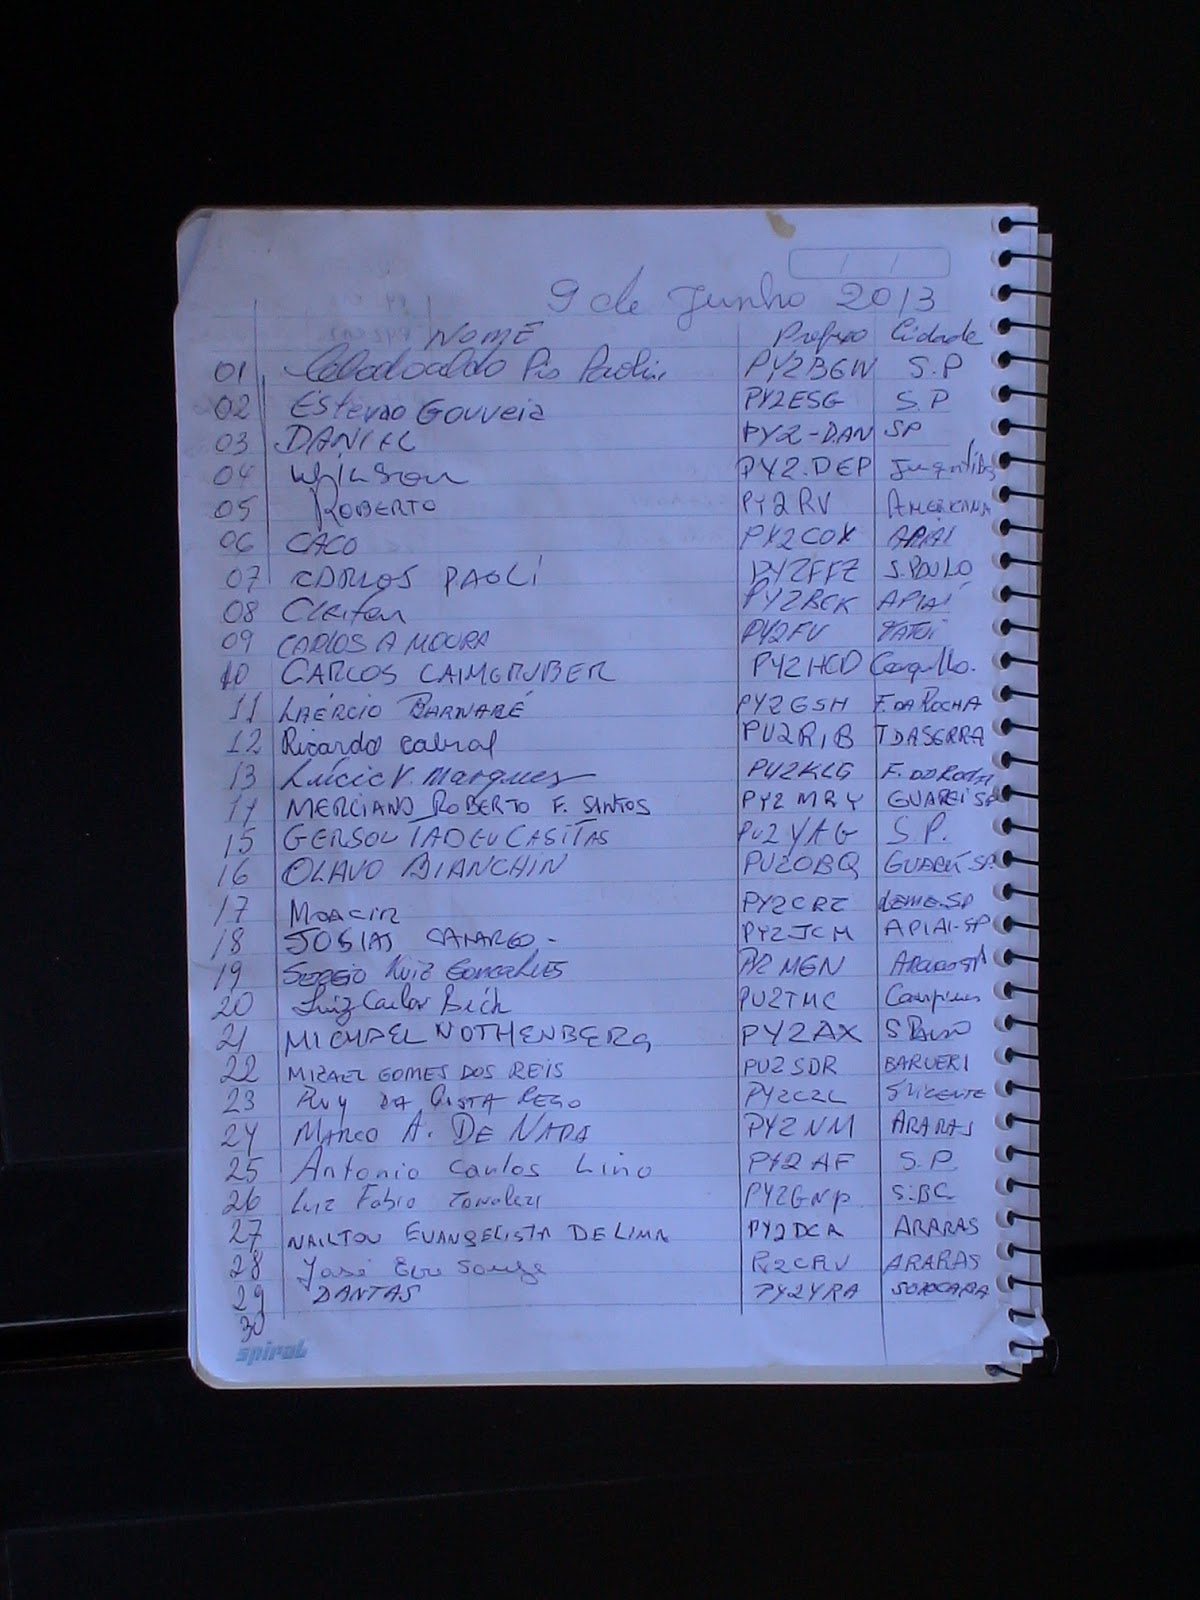 9 de Junho 2013
NOME Prefixo Cidade
01 Pio PY2BGW S.P
02 Estevao Gouveia PY2ESG S.P
03 DANIEL PY2-DAN SP
04 Wilson PY2.DEP
05 ROBERTO PY2RV AMERICANA
06 CACO PY2COX APIAÍ
07 CARLOS PAOLI PY2FFZ S.PAULO
08 Cleiton PY2BEK APIAÍ
09 CARLOS A MOURA PY2FV TATUI
10 CARLOS CAIMGRUBER PY2HCD
11 LAÉRCIO BARNABÉ PY2GSH F. DA ROCHA
12 Ricardo Cabral PU2RIB T DA SERRA
13 V. Marques PU2KLG
14 MERCIANO ROBERTO F. SANTOS PY2MRY GUAREÍ SP
15 GERSON TADEU CASITAS PU2YAG S.P.
16 OLAVO BIANCHIN PU2OBQ GUAREÍ-SP.
17 MOACIR PY2CRZ LEME.SP
18 JOSIAS CAMARGO - PY2JCM APIAI-SP
19 Sergio Luiz Goncalves PY2MGN
20 Luiz Carlos PU2TMC Campinas
21 MICHAEL NOTHENBERG PY2AX S Paulo
22 MIZAEL GOMES DOS REIS PU2SDR BARUERI
23 RUY DA COSTA REGO PY2CZL S VICENTE
24 MARCO A. DE NAPA PY2NM ARARAS
25 Antonio Carlos Lino PY2AF S.P
26 Luiz Fabio PY2GNP S.BC
27 NAILTON EVANGELISTA DE LIMA PY2DCA ARARAS
28 José PY2CRV ARARAS
29 DANTAS PY2YRA SOROCABA
30
spiral